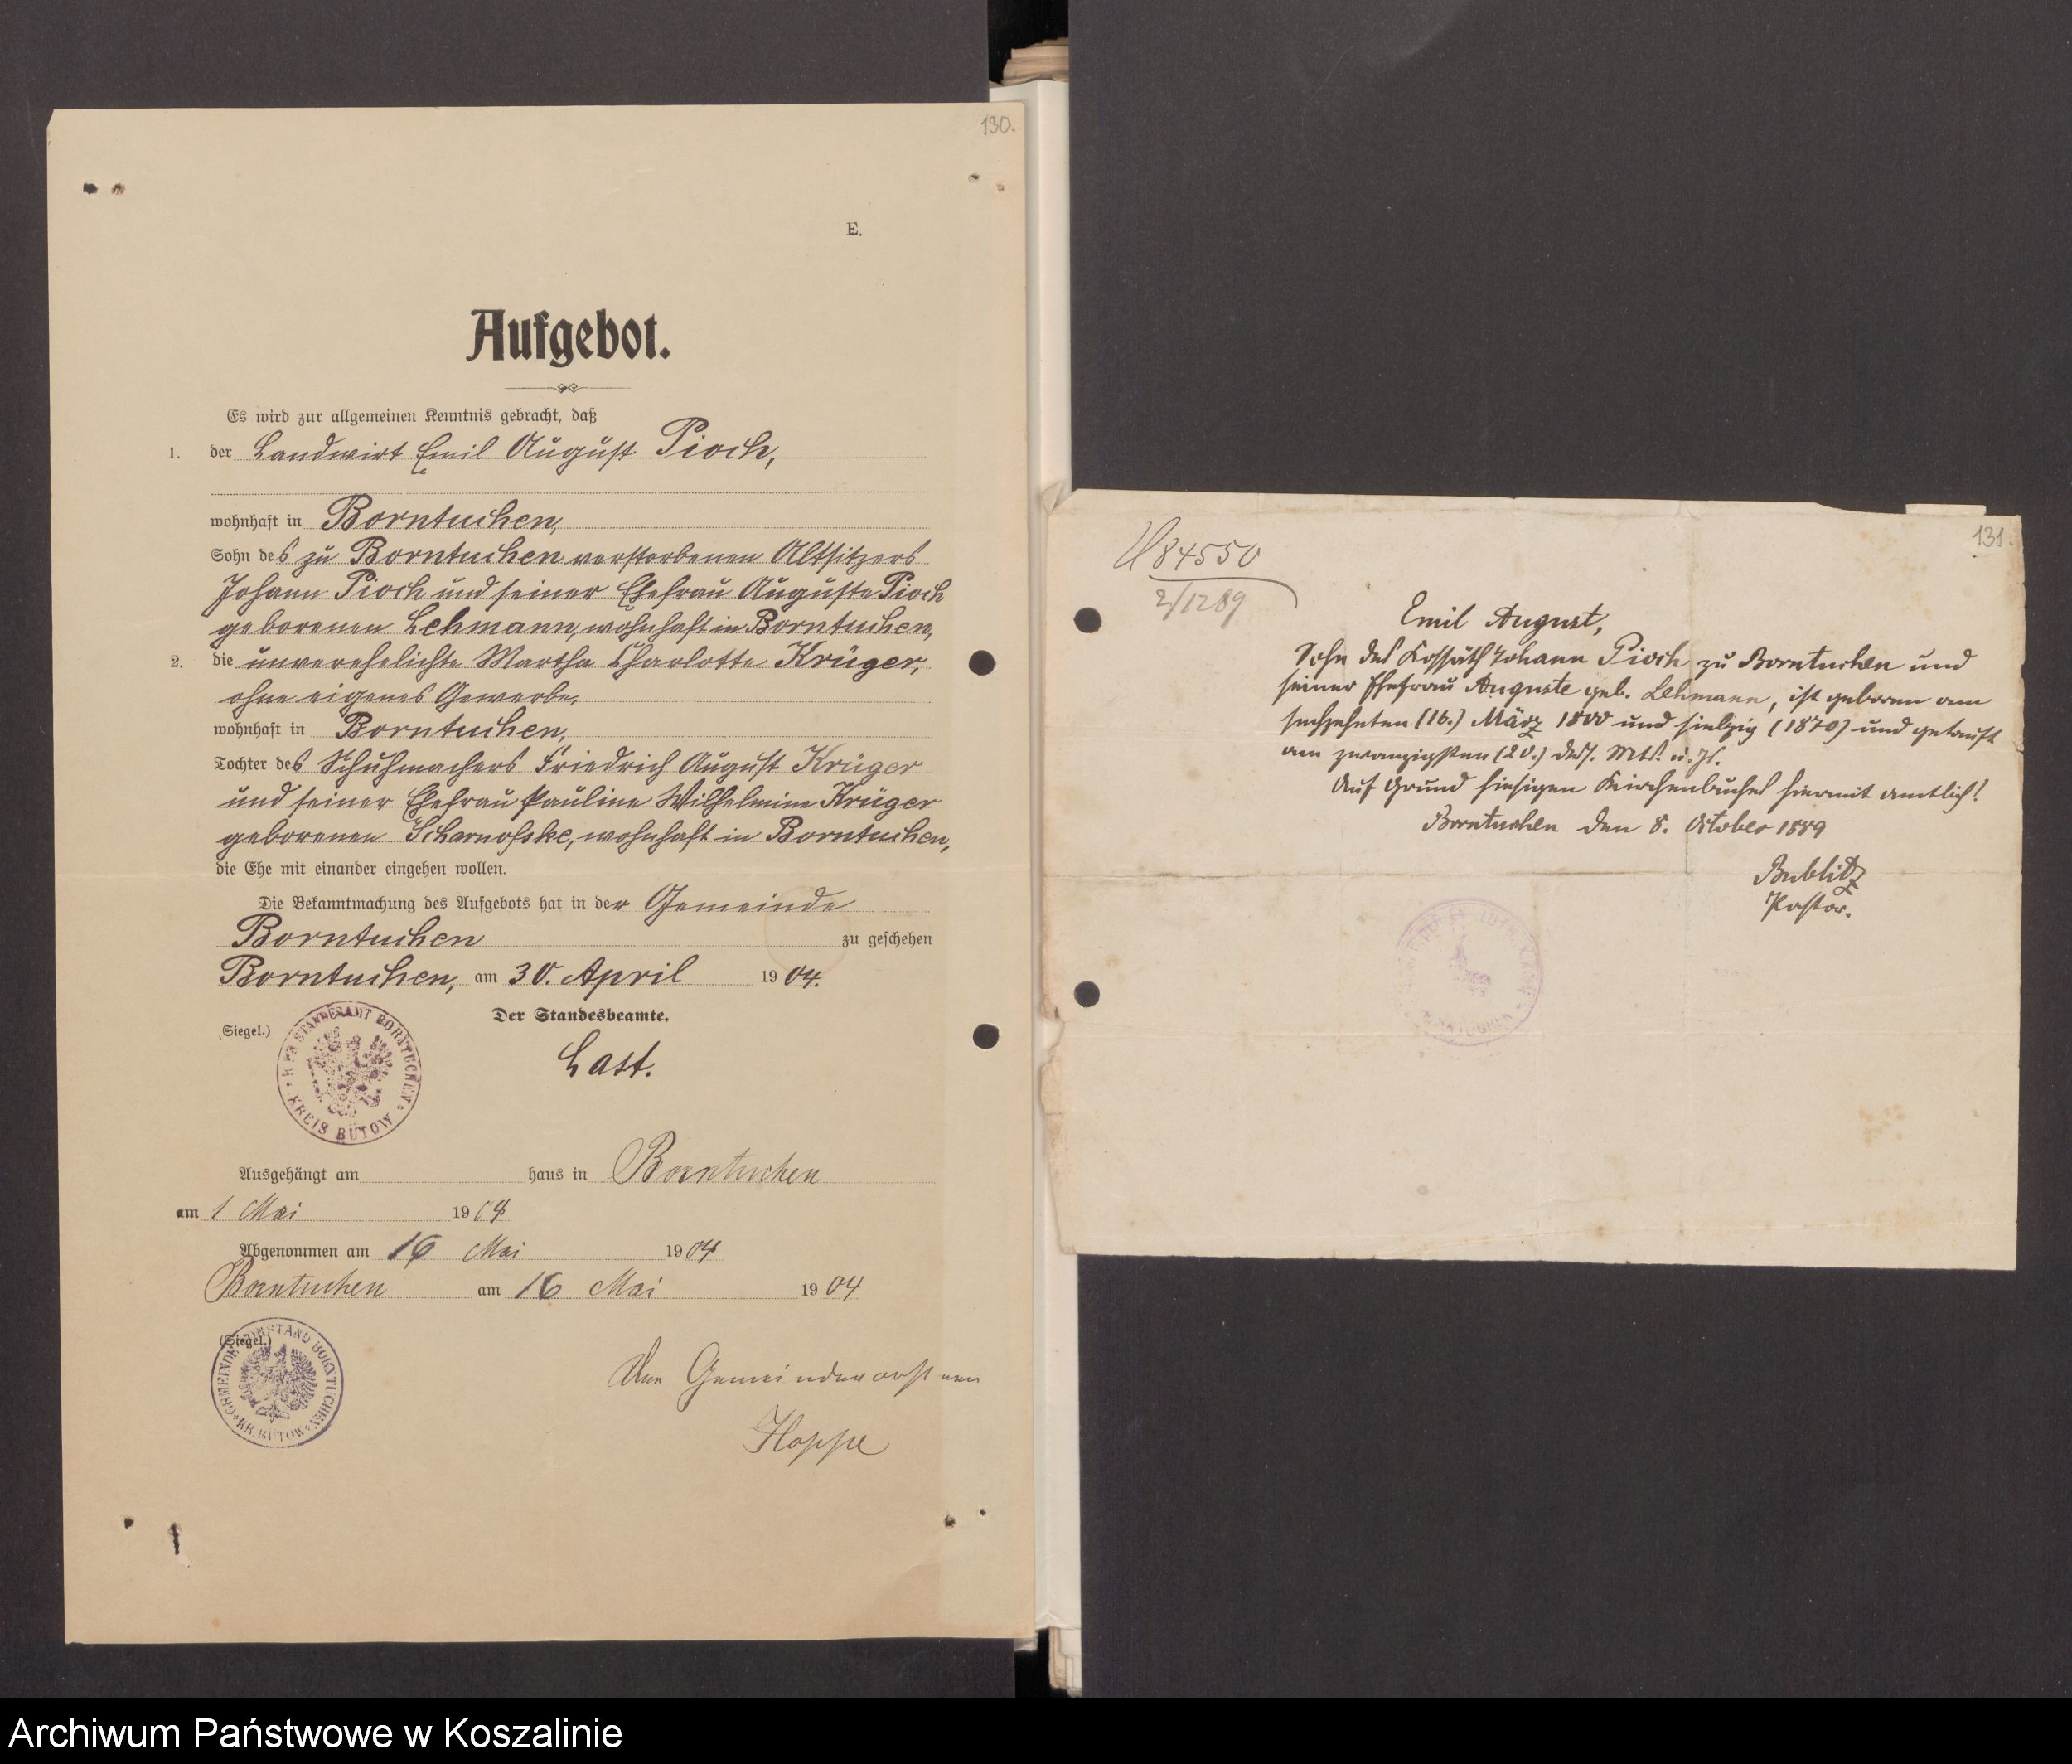 130.
E.
Aufgebot.
Es wird zur allgemeinen Kenntnis gebracht, daß
1. der Landwirt Emil August Pioch,
wohnhaft in Borntuchen,
Sohn des zu Borntuchen verstorbenen Altsitzers
Johann Pioch und seiner Ehefrau Auguste Pioch
geborenen Lehmann, wohnhaft in Borntuchen,
2. die unverehelichte Martha Charlotte Krüger,
ohne eigenes Gewerbe,
wohnhaft in Borntuchen,
Tochter des Schuhmachers Friedrich August Krüger
und seiner Ehefrau Pauline Wilhelmine Krüger
geborenen Scharnofske, wohnhaft in Borntuchen,
die Ehe mit einander eingehen wollen.
Die Bekanntmachung des Aufgebots hat in der Gemeinde
Borntuchen zu geschehen
Borntuchen, am 30. April 1904.
Der Standesbeamte.
(Siegel.)
Last.
STANDESAMT BORNTUCHEN
KREIS BÜTOW
Ausgehängt am haus in Borntuchen
am 1 Mai 1904
Abgenommen am 16 Mai 1904
Borntuchen am 16 Mai 1904
(Siegel.)
GEMEINDE VORSTAND BORNTUCHEN
KR. BÜTOW
Der Gemeindevorsteher
Hoppe
131.
84550
2/1289
Emil August,
Sohn des Kossäth Johann Pioch zu Borntuchen und
seiner Ehefrau Auguste geb. Lehmann, ist geboren am
sechzehnten (16.) März 1800 und siebzig (1870) und getauft
am zwanzigsten (20.) dess. Mts. u. Js.
Auf Grund hiesigen Kirchenbuches hiermit amtlich!
Borntuchen den 8. October 1889
Bublitz
Pastor.
Archiwum Państwowe w Koszalinie